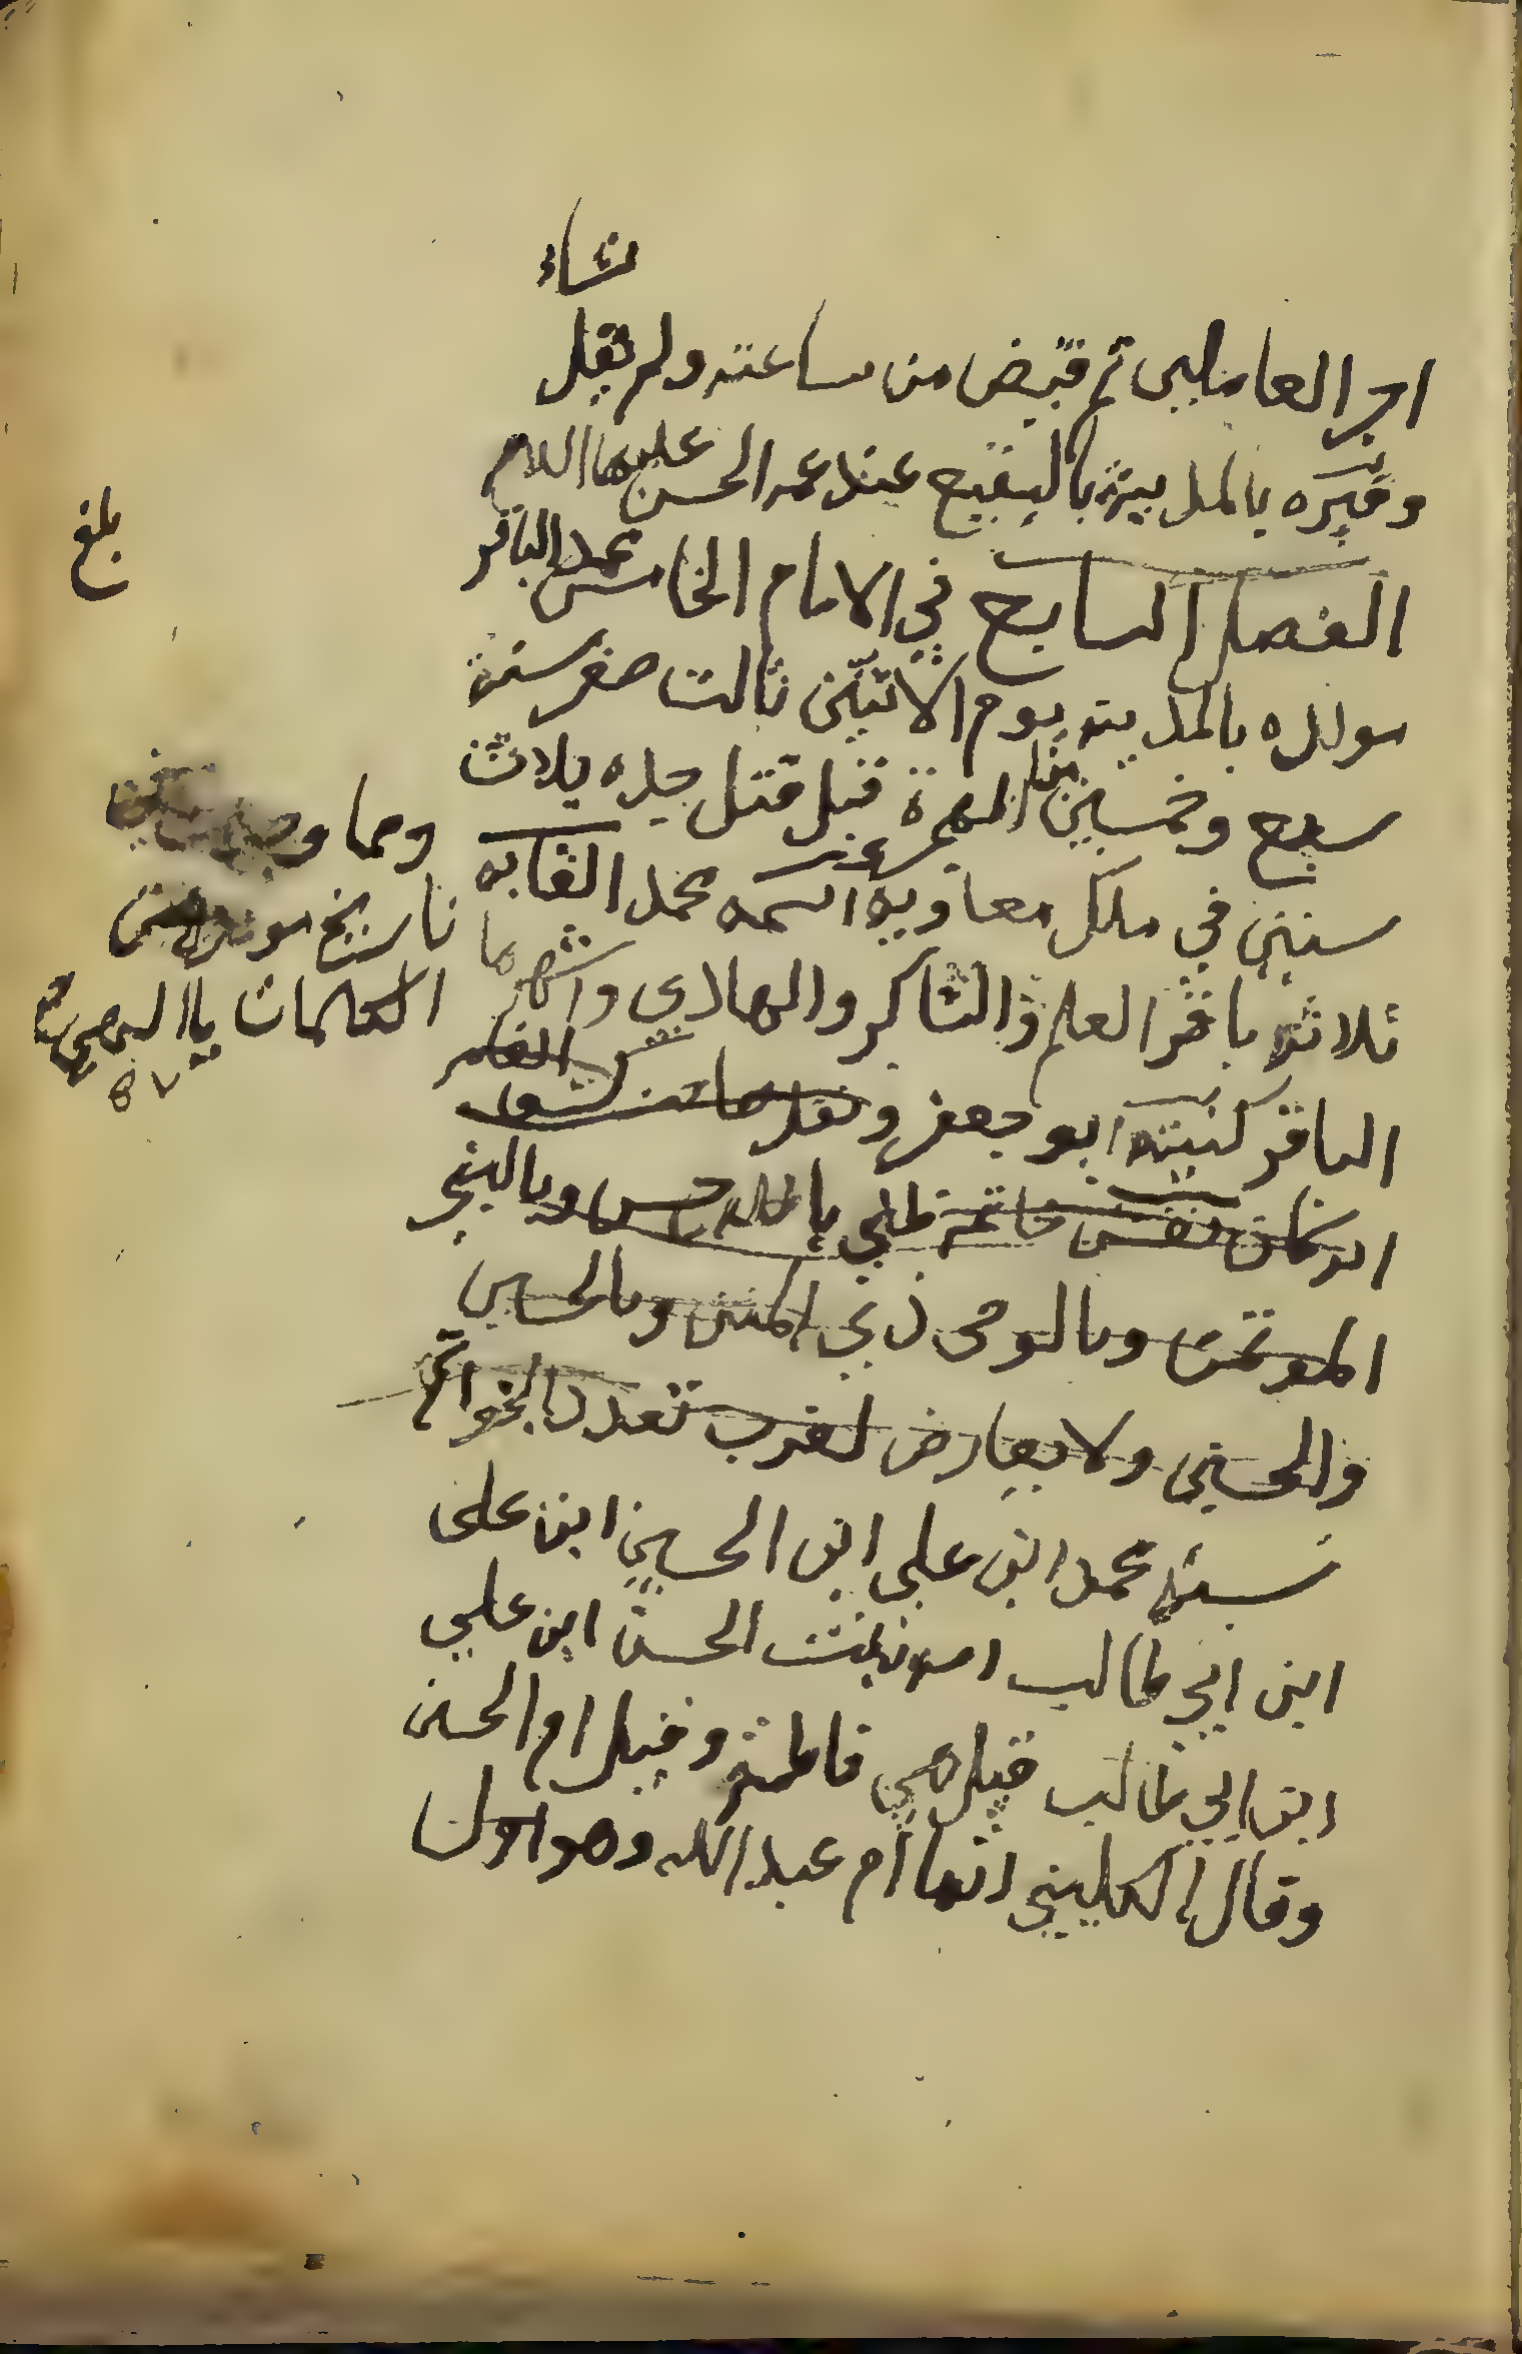 نشاء
اجر العاملين ثم قبض من ساعته ولم يقل
وقبره بالمدينة بالبقيع عند عمه الحسن عليهما السلام
بلغ
الفصل السابع في الامام الخامس محمد الباقر
مولده بالمدينة يوم الاثنين ثالث صفر سنة
سبع وخمسين من الهجرة قبل قتل جده بثلاث
سنين في ملك معاوية اسمه محمد القابه
ثلاثة باقر العلم والشاكر والهادي واشهرها
الباقر كنيته ابو جعفر
نقش خاتمه ظني بالله حسن وبالنبي
الموتمن وبالوصي ذي المنن وبالحسين
والحسن ولا يعارض لقرب تعدد الخواتم
نسبه محمد ابن علي ابن الحسين ابن علي
ابن ابي طالب امه بنت الحسن ابن علي
ابن ابي طالب قيل هي فاطمة وقيل ام الحسن
وقال الكليني انها ام عبد الله وهو اول
ومما
تاريخ مولده
الكلمات
٥٧